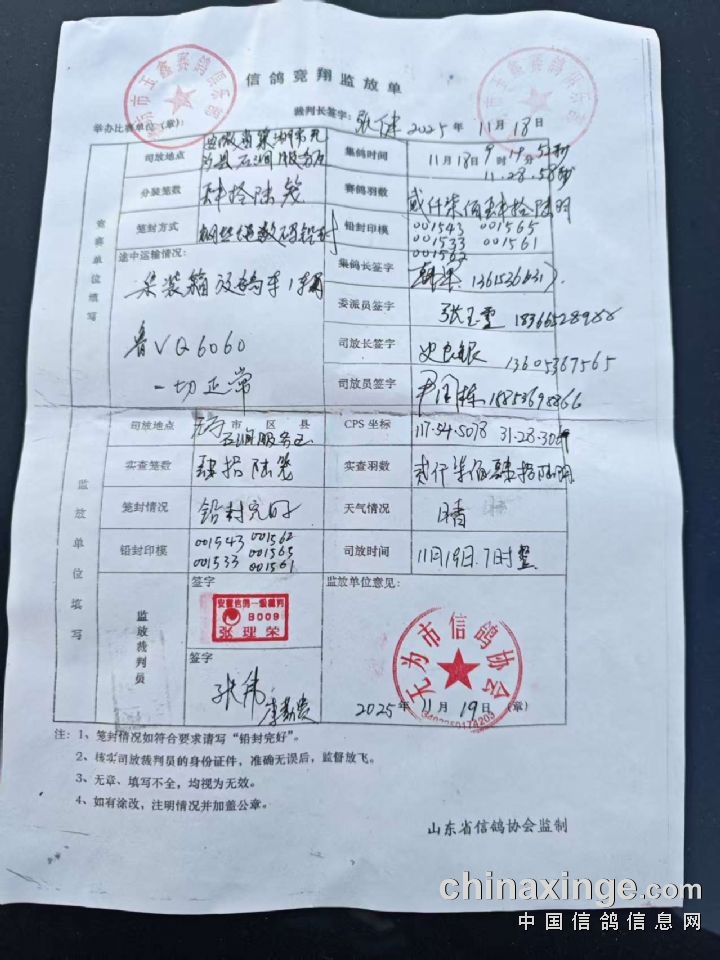 信鸽竞翔监放单
市玉鑫赛鸽俱乐部
举办比赛单位（章）：
裁判长签字：张健 2025年11月18日
竞赛单位填写
司放地点
安徽省巢湖市无为县石涧服务区
集鸽时间
11月18日9时19分52秒
11.28.58秒
分装笼数
肆拾陆笼
赛鸽羽数
贰仟柒佰肆拾陆羽
笼封方式
铅封印模
001543 001565
001533 001561
001562
途中运输情况：
集装箱放鸽车1辆
鲁VQ6060
一切正常
集鸽长签字
委派员签字
张玉 18366528988
司放长签字
史良银 13605367565
司放员签字
尹国栋 18853698866
监放单位填写
司放地点
无为市 区 县
石涧服务区
CPS坐标
117.54.5078 31.28.30
实查笼数
肆拾陆笼
实查羽数
贰仟柒佰肆拾陆羽
笼封情况
铅封完好
天气情况
晴
铅封印模
001543 001562
001533 001565
001561
司放时间
11月19日.7时整
监放裁判员
签字
安徽信鸽一级裁判
B009
张理荣
签字
张伟
监放单位意见：
无为市信鸽协会
2025年11月19日（章）
注：1、笼封情况如符合要求请写“铅封完好”。
2、核实司放裁判员的身份证件，准确无误后，监督放飞。
3、无章、填写不全，均视为无效。
4、如有涂改，注明情况并加盖公章。
山东省信鸽协会监制
chinaxinge.com
中国信鸽信息网